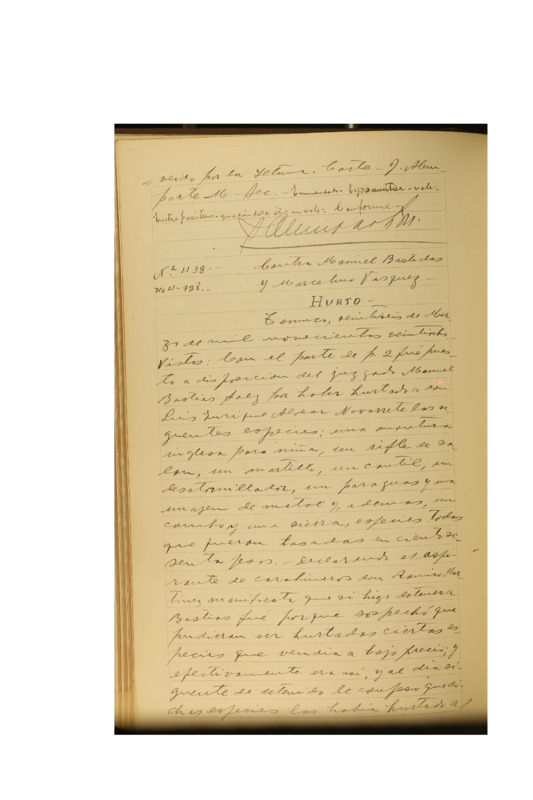 veido por la Iltma. Corte - J. Alem-
parte M. - Sec. - Enmendado - vale -
Entre paréntesis - no vale. Conforme -
Nº 1138. -- Contra Manuel Bastidas
y Marcelino Vasquez -
HURTO -
Temuco, veintiseis de Mar
zo de mil novecientos veintiocho
Vistos: Con el parte de f. 2 fué pues-
to a disposicion del juzgado Manuel
Bastias Saez por haber hurtado a don
Luis Enrique Navarrete las si
guientes especies: una montura
inglesa para niña, un rifle de sa
lon, un martillo, un cautil, un
desatornillador, un paraguas y una
imagen de metal y, ademas, un
combo y una sierra, especies todas
que fueron tasadas en ciento se-
senta pesos. - Declarando el aspi-
rante de carabineros don Ramiro Mar
tinez manifiesta que si hizo detener a
Bastias fué porque sospechó que
pudieran ser hurtadas ciertas es
pecies que vendia a bajo precio; y
efectivamente era asi, y al dia si-
guiente de detenido le confesó que di-
chas especies las habia hurtado a